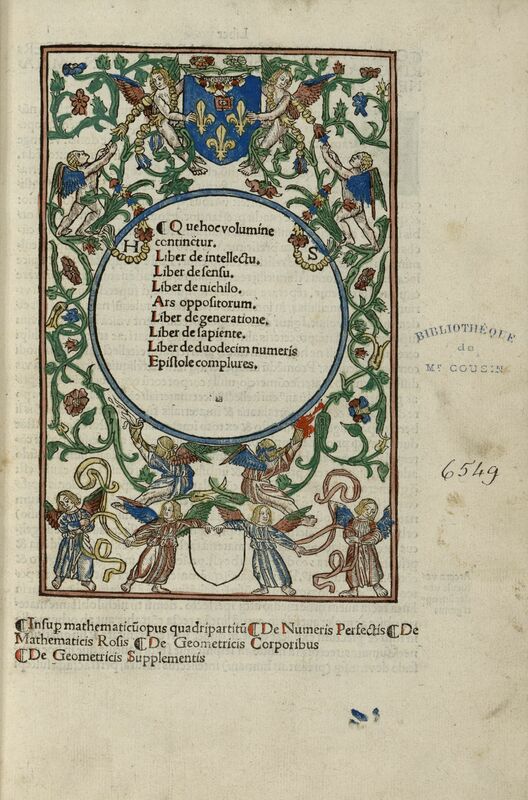 H
S
¶ Que hoc volumine
continẽtur.
Liber de intellectu.
Liber de sensu.
Liber de nichilo.
Ars oppositorum.
Liber de generatione.
Liber de sapiente.
Liber de duodecim numeris
Epistole complures.
¶Insup mathematicũ opus quadripartitũ ¶De Numeris Perfectis ¶De
Mathematicis Rosis ¶De Geometricis Corporibus
¶De Geometricis Supplementis
BIBLIOTHÉQUE
de
Mr COUSIN
6549